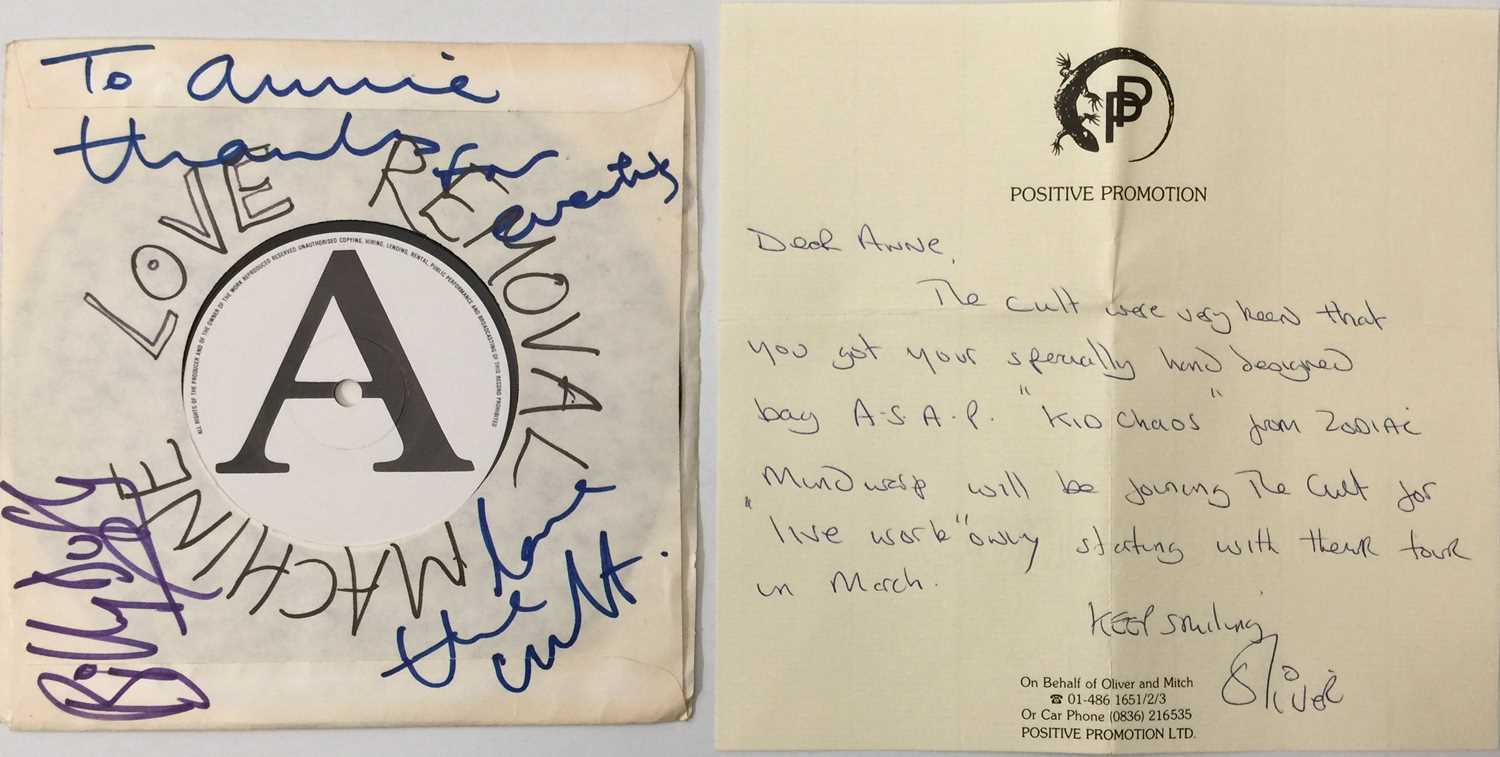 To Annie
thanks for
everything
LOVE REMOVAL MACHINE
ALL RIGHTS OF THE PRODUCER AND OF THE OWNER OF THE WORK REPRODUCED RESERVED. UNAUTHORISED COPYING, HIRING, LENDING, RENTAL, PUBLIC PERFORMANCE AND BROADCASTING OF THIS RECORD PROHIBITED
A
love
the
cult.
Billy Duffy
PP
POSITIVE PROMOTION
Dear Anne,
The Cult were very keen that
you got your specially hand designed
bag A.S.A.P. "Kid Chaos" from Zodiac
Mindwarp will be joining The Cult for
"live work" only starting with their tour
in March.
KEEP smiling,
Oliver
On Behalf of Oliver and Mitch
☎ 01-486 1651/2/3
Or Car Phone (0836) 216535
POSITIVE PROMOTION LTD.